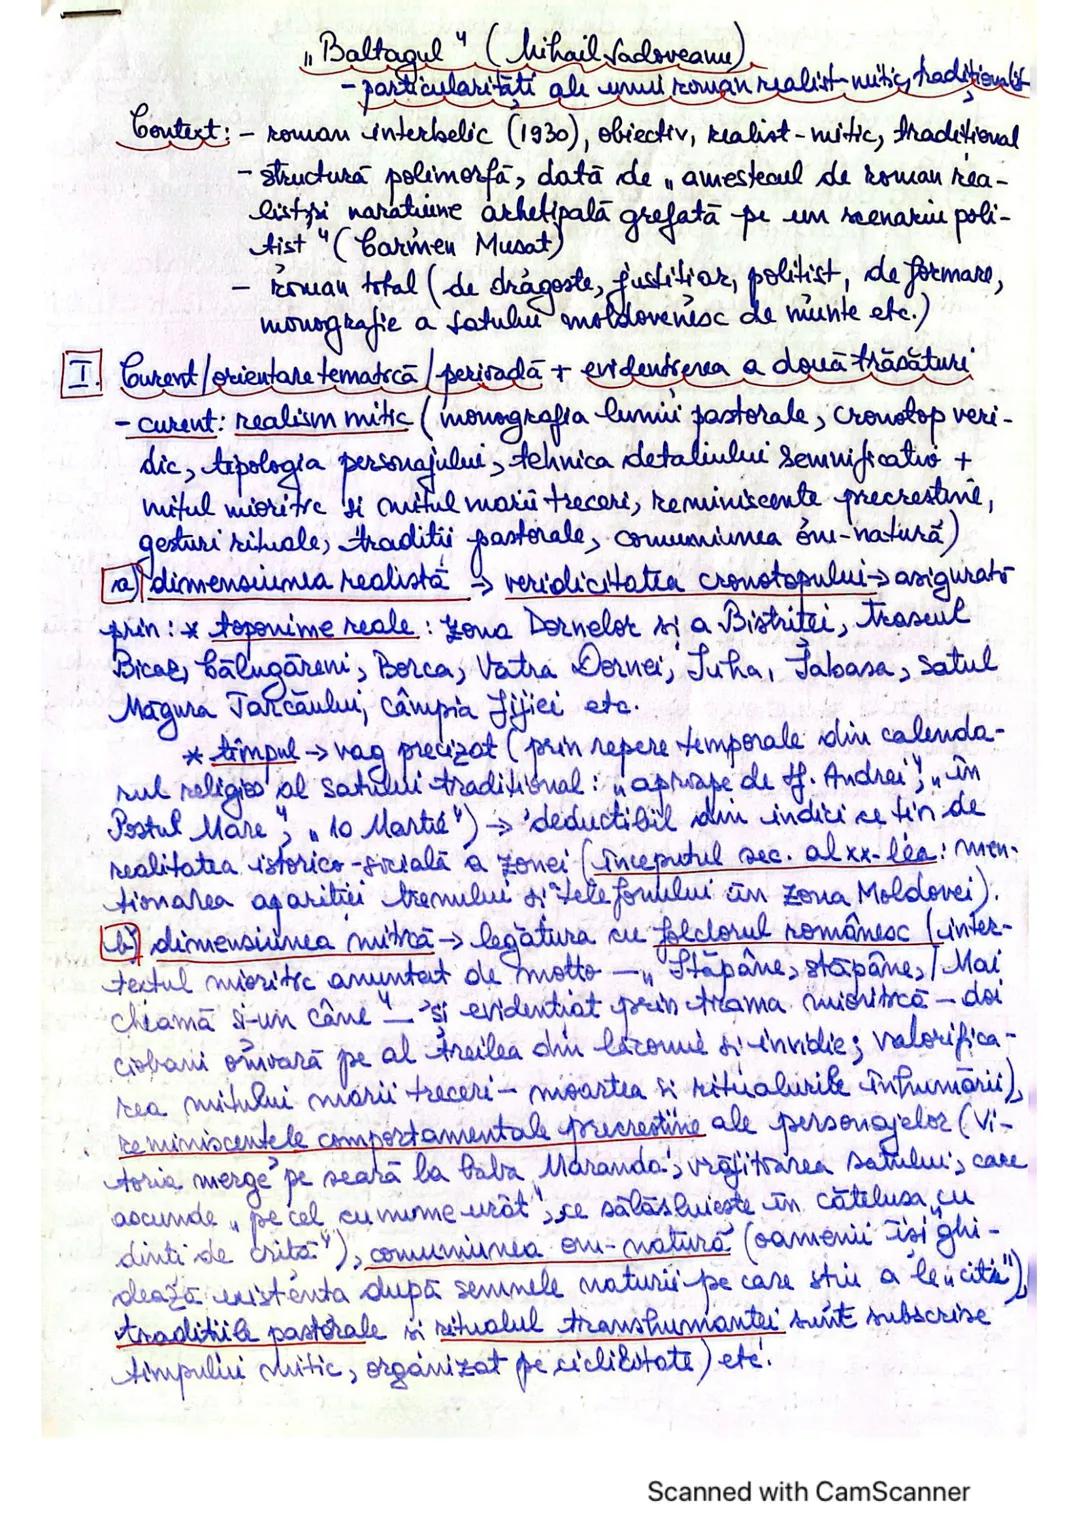 „Baltagul" (Mihail Sadoveanu)
- particularități ale unui roman realist-mitic, tradiționalist
Context: - roman interbelic (1930), obiectiv, realist-mitic, tradițional
- structură polimorfă, dată de „amestecul de roman rea-
list și narațiune arhetipală grefată pe un scenariu poli-
țist" (Carmen Mușat)
- roman total (de dragoste, justițiar, polițist, de formare,
monografie a satului moldovenesc de munte etc.)
I. Curent/orientare tematică/perioadă + evidențierea a două trăsături
- curent: realism mitic (monografia lumii pastorale, cronotop veri-
dic, tipologia personajului, tehnica detaliului semnificativ +
mitul mioritic și mitul marii treceri, reminiscențe precreștine,
gesturi rituale, tradiții pastorale, comuniunea om-natură)
a) dimensiunea realistă → veridicitatea cronotopului → asigurată
prin: * toponime reale: zona Dornelor și a Bistriței, traseul
Bicaz, Călugăreni, Borca, Vatra Dornei, Suha, Sabasa, satul
Măgura Tarcăului, câmpia Jijiei etc.
* timpul → vag precizat (prin repere temporale din calenda-
rul religios al satului tradițional: „aproape de Sf. Andrei", „în
Postul Mare", „10 Martie") → deductibil din indici ce țin de
realitatea istorico-socială a zonei (începutul sec. al XX-lea: men-
ționarea apariției trenului și telefonului în zona Moldovei).
b) dimensiunea mitică → legătura cu folclorul românesc (inter-
textul mioritic anunțat de motto — „Stăpâne, stăpâne,/ Mai
cheamă ș-un câne" — și evidențiat prin trama mioritică – doi
ciobani omoară pe al treilea din lăcomie și invidie; valorifica-
rea mitului marii treceri – moartea și ritualurile înhumării),
reminiscențele comportamentale precreștine ale personajelor (Vi-
toria merge pe seară la baba Maranda, vrăjitoarea satului, care
ascunde „pe cel cu nume urât", ce sălășluiește în cățelușa „cu
dinți de criță"), comuniunea om-natură (oamenii își ghi-
dează existența după semnele naturii pe care știu a le „citi"),
tradițiile pastorale și ritualul transhumanței sunt subscrise
timpului mitic, organizat pe ciclicitate) etc.
Scanned with CamScanner